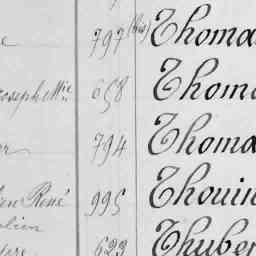 797 (bis) Thoma
Joseph Mie 658 Thoma
794 Thoma
René 995 Thouin
623 Thuber